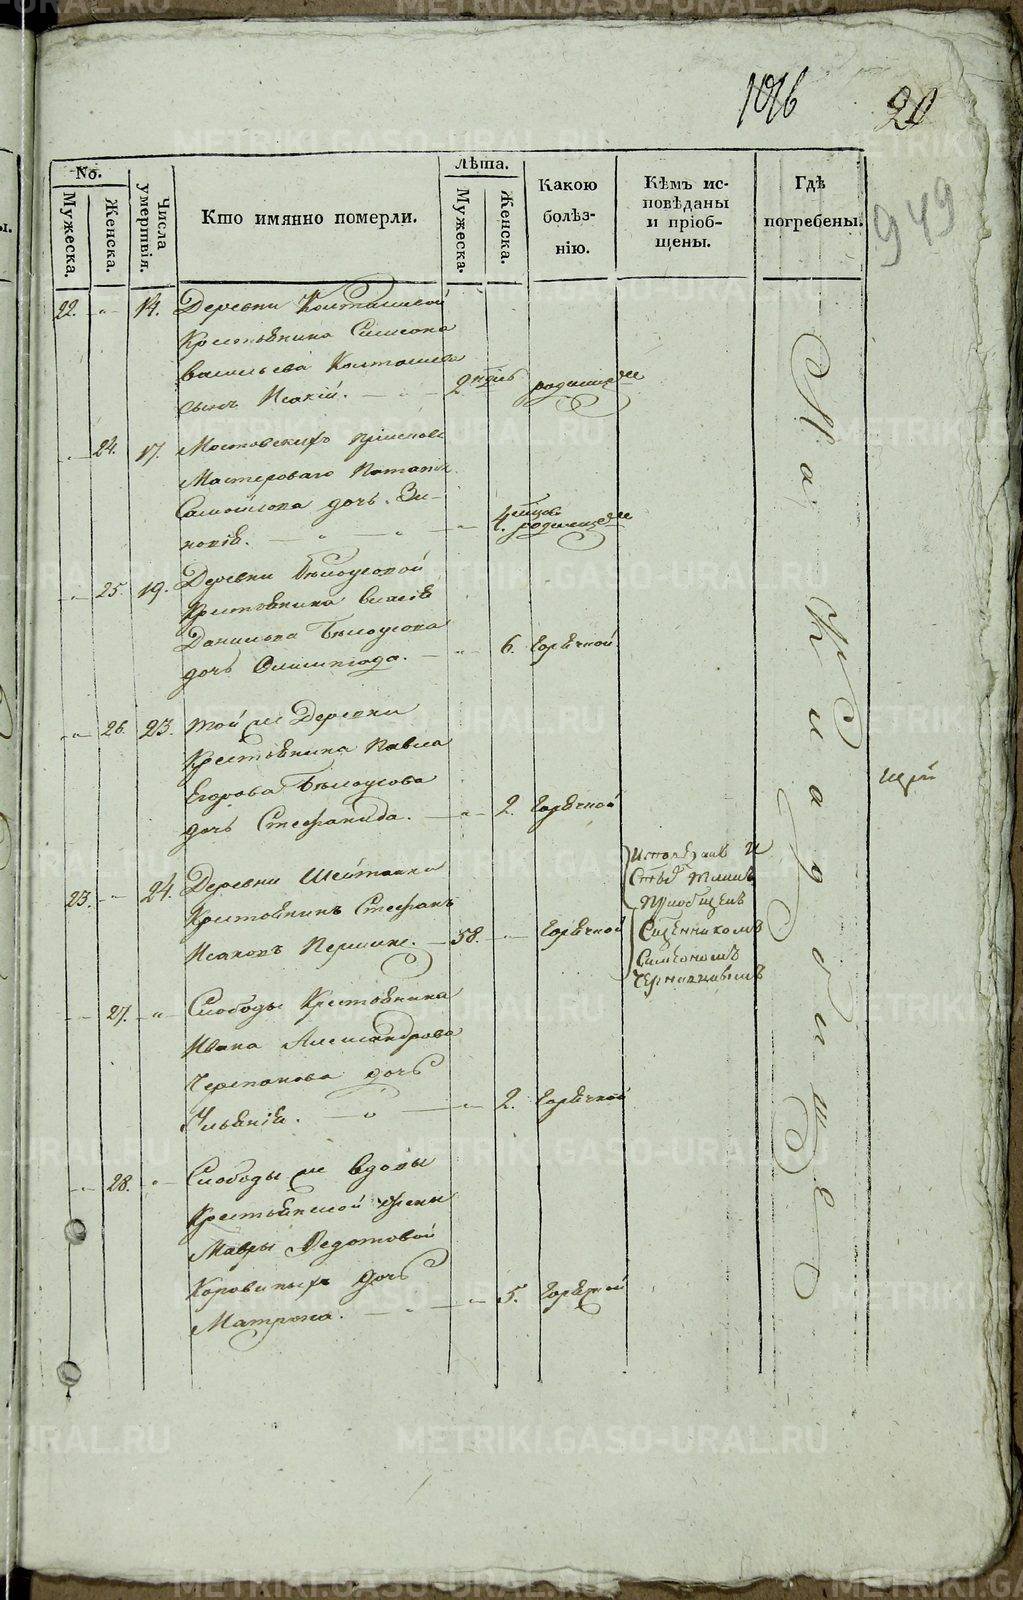 1016
20
949
No.
Мужеска.
Женска.
Числа умертвія.
Кто имянно померли.
Лѣта.
Мужеска.
Женска.
Какою
болѣз-
нію.
Кѣмъ ис-
повѣданы
и пріоб-
щены.
Гдѣ
погребены.
22. 14. Деревни Колташевой
Крестьянина Самсона
Васильева Колташева
сынъ Исакій. 2 родимцемъ
24. 17. Мостовскихъ
Мастероваго Потапа
Самойлова дочь Зи-
новія. 4 родимцемъ
25. 19. Деревни Бѣлоусовой
Крестьянина
Данилова Бѣлоусова
дочь Олимпіада. 6. Горячкой
26. 23. Той же Деревни
Крестьянина Павла
Егорова Бѣлоусова
дочь Стефанида. 2. Горячкой
23. 24. Деревни Шайтанки
Крестьянинъ Стефанъ
Исаковъ Першинъ. 58. Горячкой
Исповѣданъ и
Св. Таинъ
Пріобщенъ
Священникомъ
Симеономъ
27. Слободы Крестьянина
Ивана Александрова
Черепанова дочь
Ульянія. 2. Горячкой
28. Слободы же вдовы
Крестьянской жены
Мавры Федотовой
Коровиныхъ дочь
Матрона. 5. Горячкой
На Кладбище
METRIKI.GASO-URAL.RU